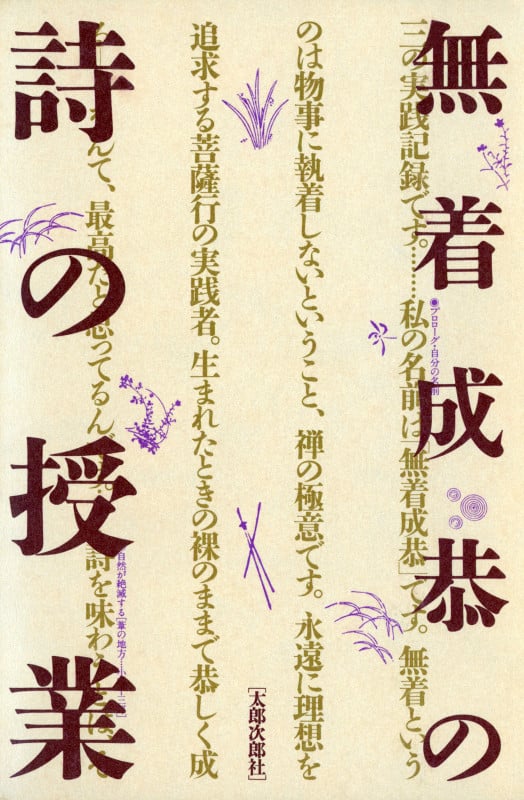 無着成恭の
三の実践記録です。……私の名前は「無着成恭」です。無着という
●プロローグ・自分の名前
のは物事に執着しないということ、禅の極意です。永遠に理想を
追求する菩薩行の実践者。生まれたときの裸のままで恭しく成
なんて、最高だと思ってるんで 詩を味わ
自然が絶滅する[葦の地方
詩の授業
[太郎次郎社]